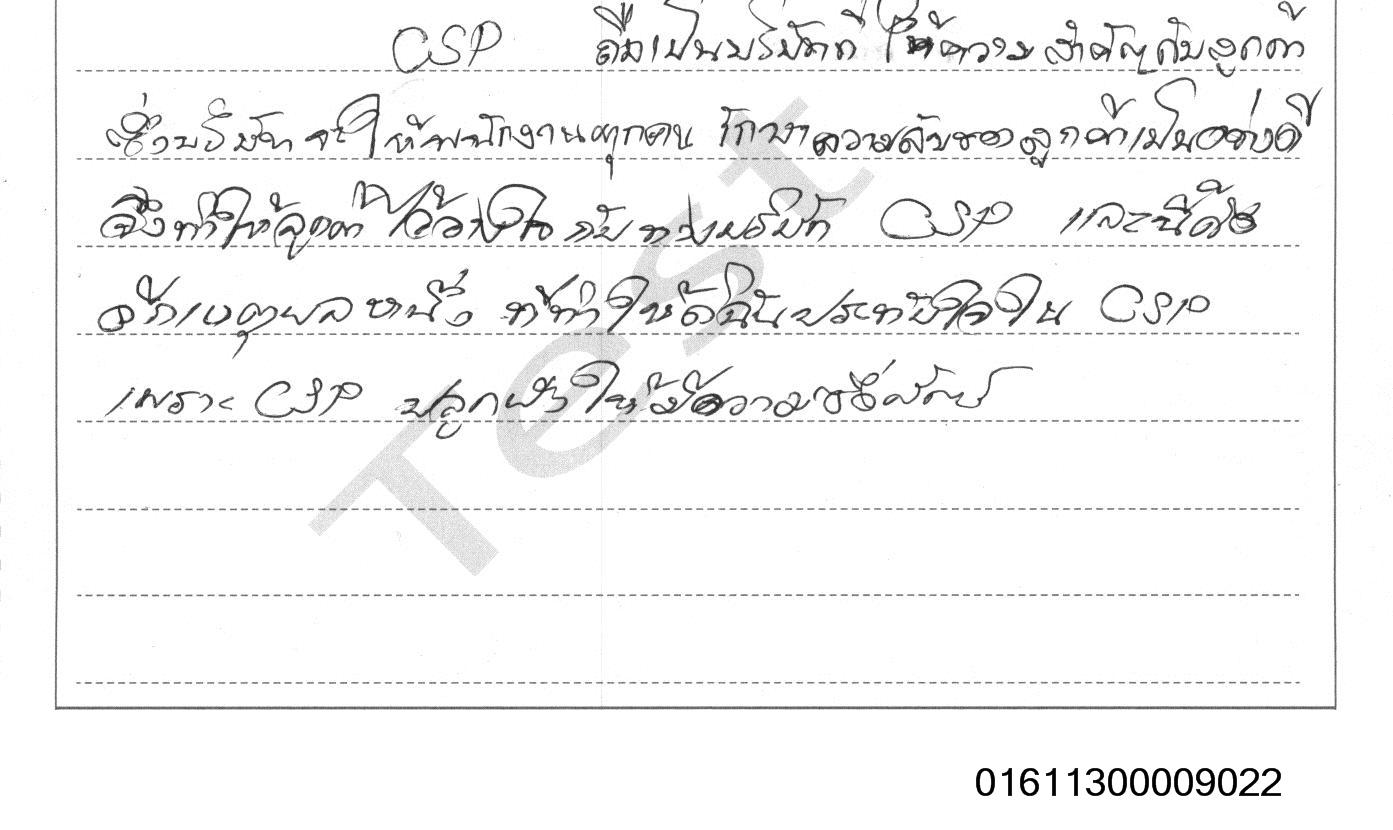 CSP ถือเป็นบริษัทที่ให้ความสำคัญกับลูกค้า
ซึ่งบริษัทจะให้พนักงานทุกคน รักษาความลับของลูกค้าเป็นอย่างดี
จึงทำให้ลูกค้าไว้วางใจกับทางบริษัท CSP และนี่คือ
อีกเหตุผลหนึ่ง ที่ทำให้ดิฉันประทับใจใน CSP
เพราะ CSP ปลูกฝังให้มีความซื่อสัตย์
Test
01611300009022